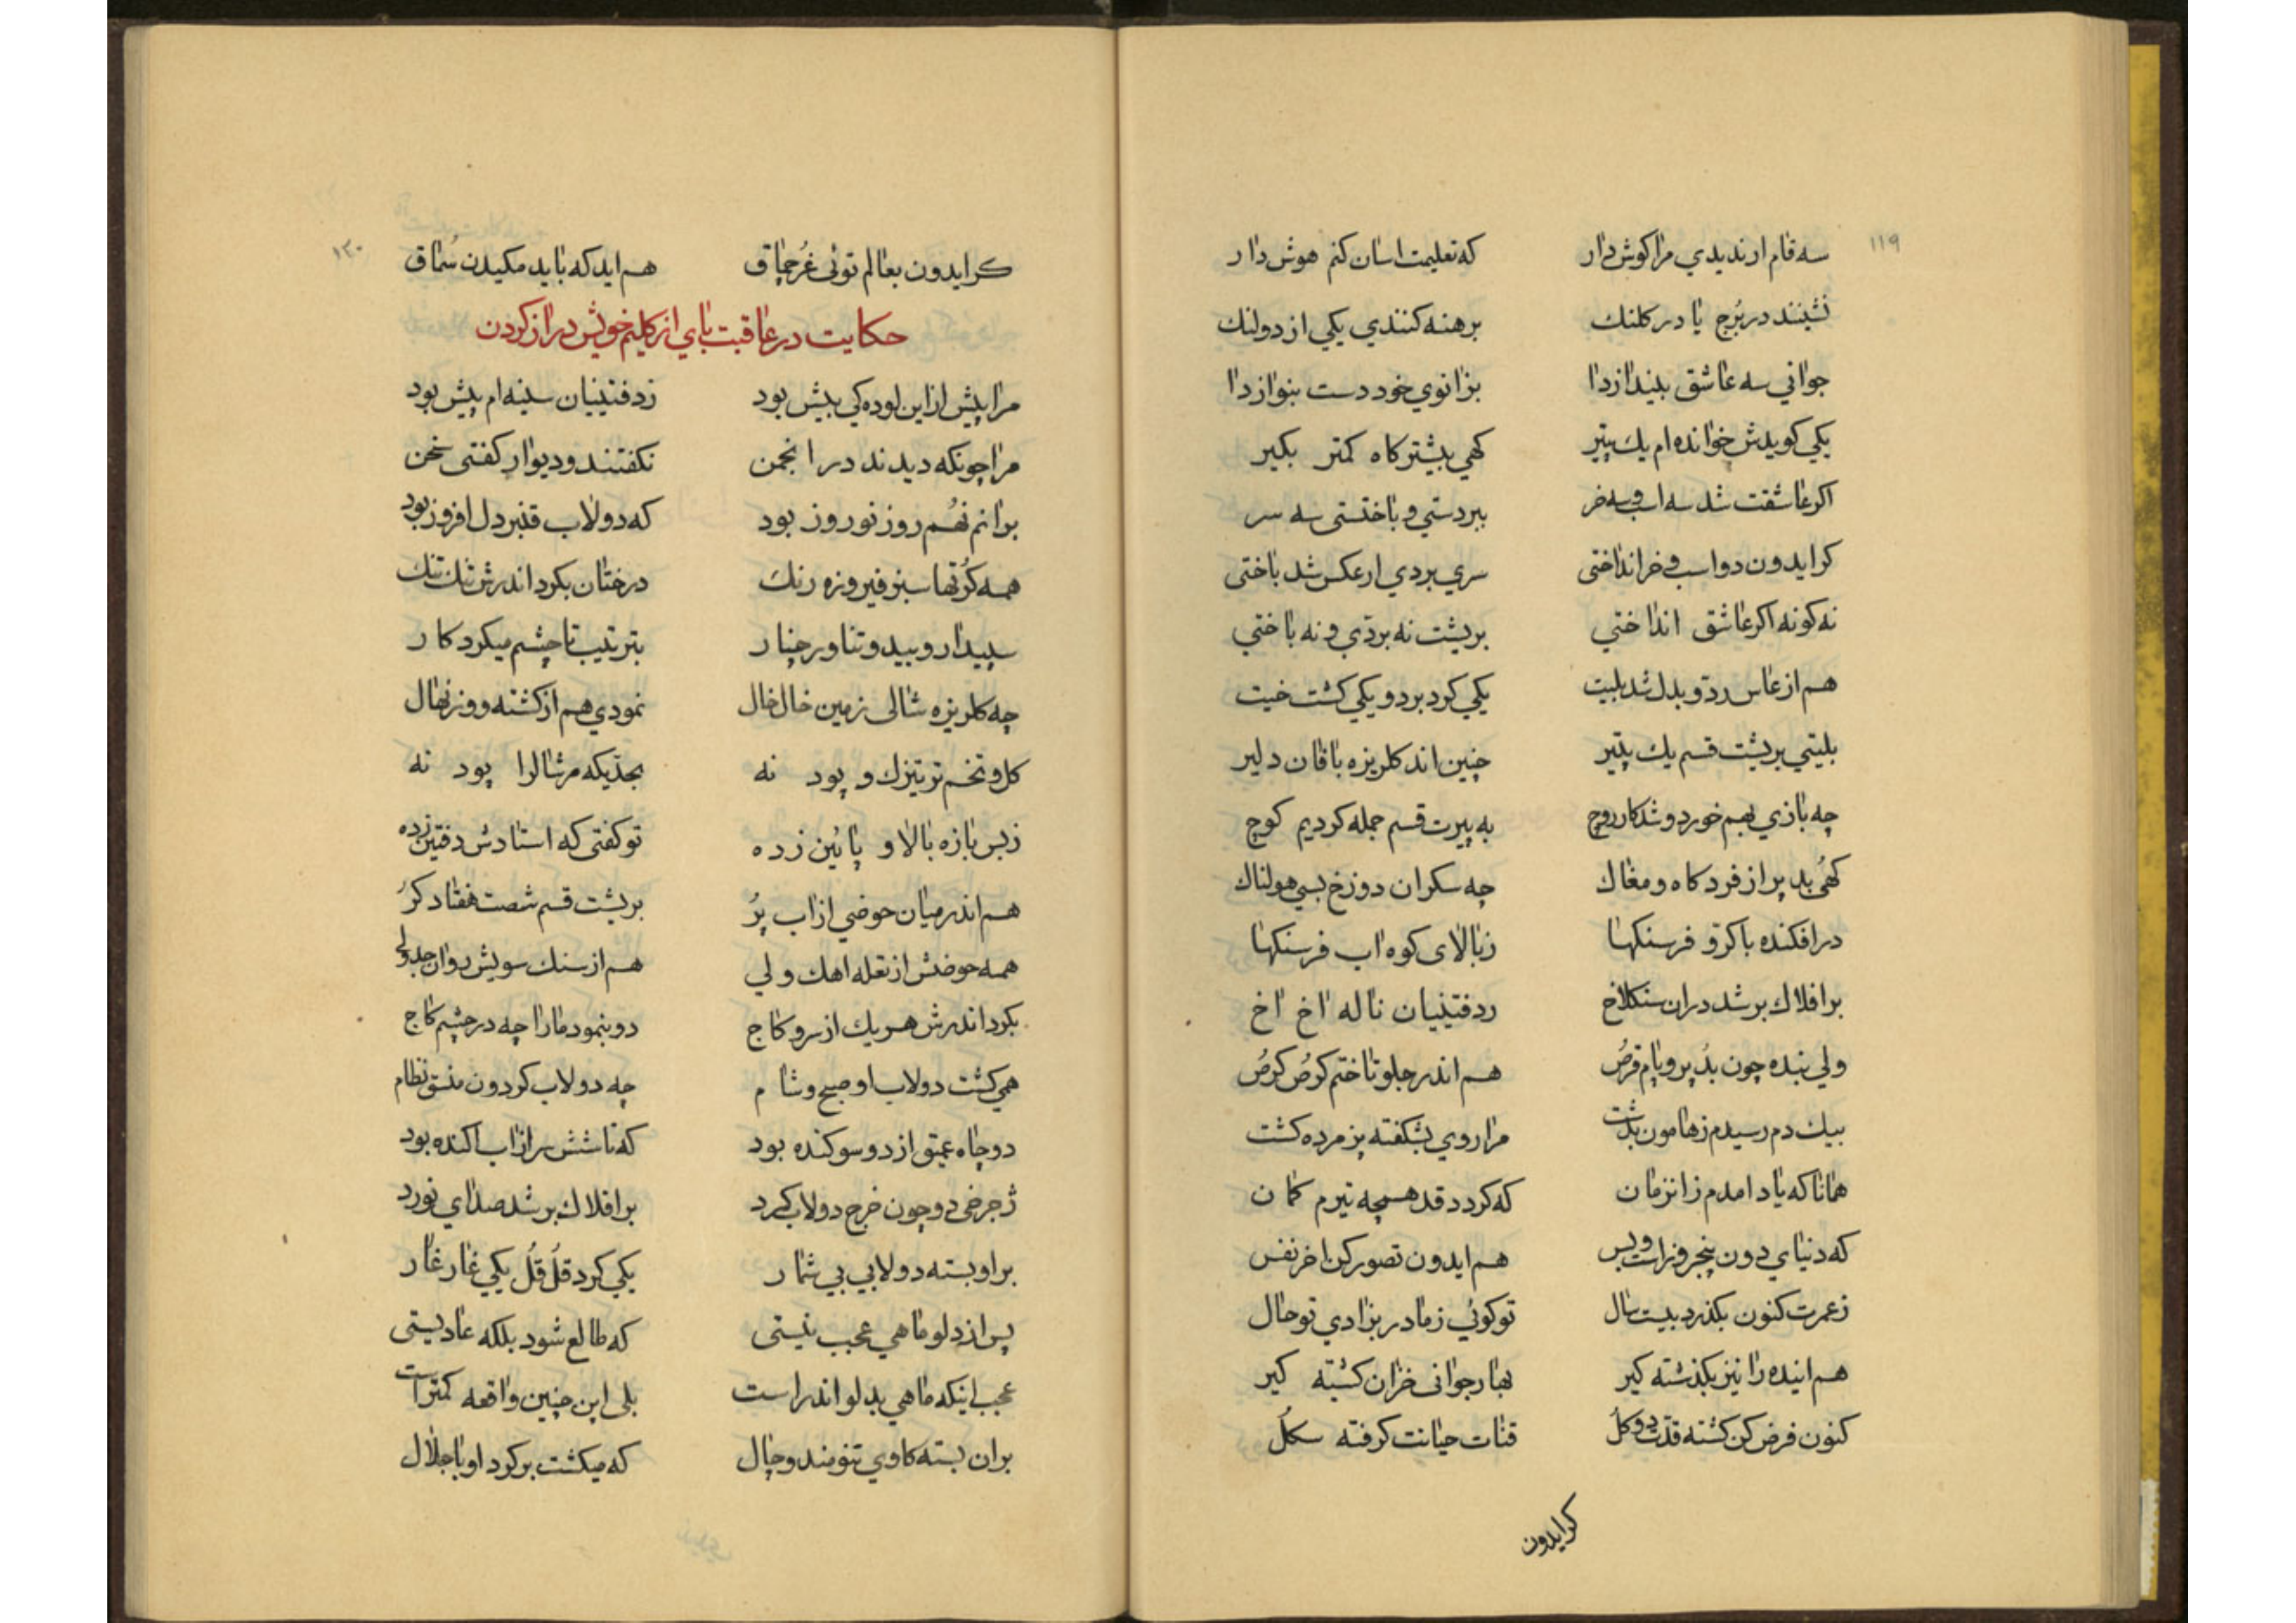 ۱۱۹
سه قام ار ندیدی مرا کوش دار که تعلیمت اسان کنم هوش دار
نشینند در برج یا در کلنك برهنه کنندی یکی از دو لنك
جوانی سه عاشق بیندازدا بزانوی خود دست بنوازدا
یکی کویدش خوانده ام یك پتیر کهی بیشتر کاه کمتر بکیر
اکر عاشقت شد سه اسب و سه خر ببردستی و باختستی سه سر
کر ایدون دو اسب و خر انداختی سری بردی ار عکس شد باختی
نه کونه اکر عاشق انداختی بریشت نه بردی و نه باختی
هم از عاس رد و بدل شد بلیت یکی کرد برد و یکی کشت خیت
بلیتی بریشت قسم یك پتیر چنین اند کلریزه باقان دلیر
چه بازی بهم خورد و شد کار روچ به پیرت قسم جمله کردیم کوچ
کهی بد پر از فرد کاه و مغاك چه سکران دوزخ بسی هولناك
در افکنده با کر و فر سنکها ز بالای کوه اب فرسنکها
بر افلاك بر شد دران سنکلاخ ز دفتینیان ناله اخ اخ
ولی بنده چون بد پر و پام قرص هم اندر جلو تاختم کرص کرص
بیك دم رسیدم ز هامون بدشت مرا روی بشکفته پزمرده کشت
همانا که یاد امدم زانزمان که کردد قد همچه تیرم کمان
که دنیای دون پنجروز است و بس هم ایدون تصور کن اخر نفس
ز عمرت کنون بکذرد بیست سال تو کوئی ز مادر بزادی تو حال
هم اینده را نیز بکذشته کیر بهار جوانی خزان کشته کیر
کنون فرض کن کشته قدت دو کل قنات حیاتت کرفته سکل
کر ایدون
۱۲۰
کر ایدون بعالم توئی غرچماق هم اید که باید مکیدن سماق
حکایت در عاقبت پای از کلیم خویش دراز کردن
مرا پیش از این لوده کی بیش بود ز دفتینیان سینه ام پیش بود
مرا چونکه دیدند در انجمن نکفتند و دیوار کفتی سخن
برانم نهم روز نوروز بود که دولاب قنبر دل افروز بود
همه کرتها سبز فیروزه رنك درختان بکرد اندرش تنك تنك
سپیدار و بید و تناور چنار بترتیب تا چشم میکرد کار
چه کلریزه شالی زمین خال خال نمودی هم از کشته و وز نهال
کل و تخم ترتیزك و پود نه بحدیکه مر شالرا پود نه
ز بس بازه بالا و پائین زده تو کفتی که استادش دفتین زده
هم اندر میان حوضی از اب پر بریشت قسم شصت هفتاد کر
همه حوضش از نعله اهك ولی هم از سنك سویش روان جدولی
بکرد اندرش هر یك از سرو کاج دو بنمود مارا چه در چشم کاج
همی کشت دولاب او صبح و شام چه دولاب کردون منسق نظام
دو چاه عمیق از دو سو کنده بود که تا شش سر از اب اکنده بود
ز چرخی دو چون خرج دولاب کرد بر افلاك بر شد صدای نورد
بر او بسته دولابی بی شمار یکی کرد قل قل یکی غار غار
پس از دلو ماهی عجب نیستی که طالع شود بلکه عادیستی
عجب اینکه ماهی بدلو اندر است بلی این چنین واقعه کمتر است
بران بسته کاوی تنومند و چال که میکشت بر کرد او با جلال